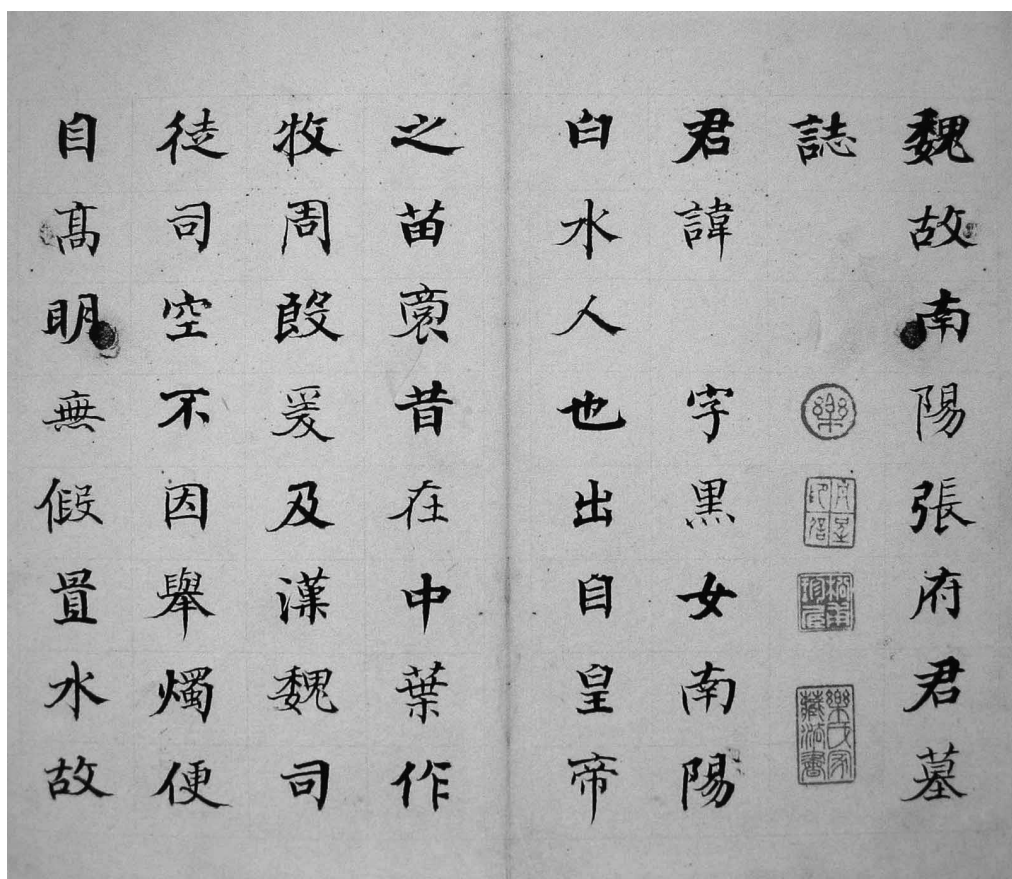 魏故南陽張府君墓
誌
君諱 字黑女南陽
白水人也出自皇帝
之苗裔昔在中葉作
牧周殷爰及漢魏司
徒司空不因舉燭便
自髙明無假置水故
樂